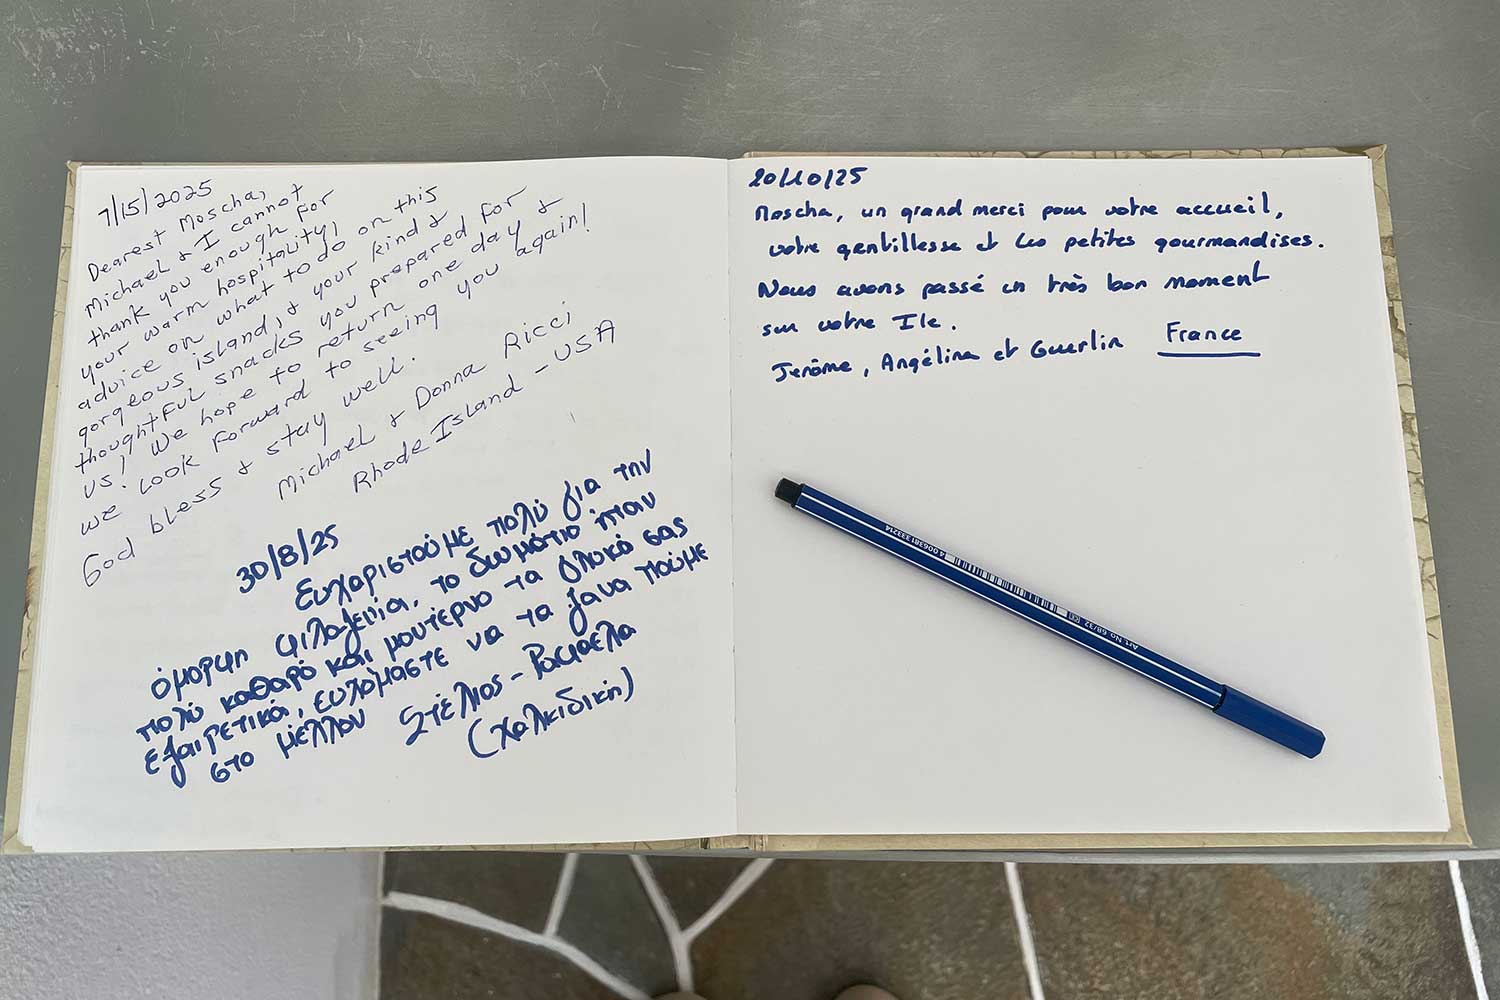 7/15/2025
Dearest Moscha,
Michael & I cannot
thank you enough for
your warm hospitality!
advice on what to do on this
gorgeous island, & your kind &
thoughtful snacks you prepared for
us! We hope to return one day &
we look forward to seeing you again!
God bless & stay well.
Michael & Donna Ricci
Rhode Island - USA
30/8/25
Ευχαριστούμε πολύ για την
όμορφη φιλοξενία, το δωμάτιο ήταν
πολύ καθαρό και μοντέρνο τα γλυκά σας
εξαιρετικά, ευχόμαστε να τα ξανα πούμε
στο μέλλον Στέλιος - Ραφαέλα
(Χαλκιδική)
20/10/25
Moscha, un grand merci pour votre accueil,
votre gentillesse et les petites gourmandises.
Nous avons passé un très bon moment
sur votre Ile.
Jerôme, Angélina et Guerlin France
4 006381 333214
Art. No. 68/32